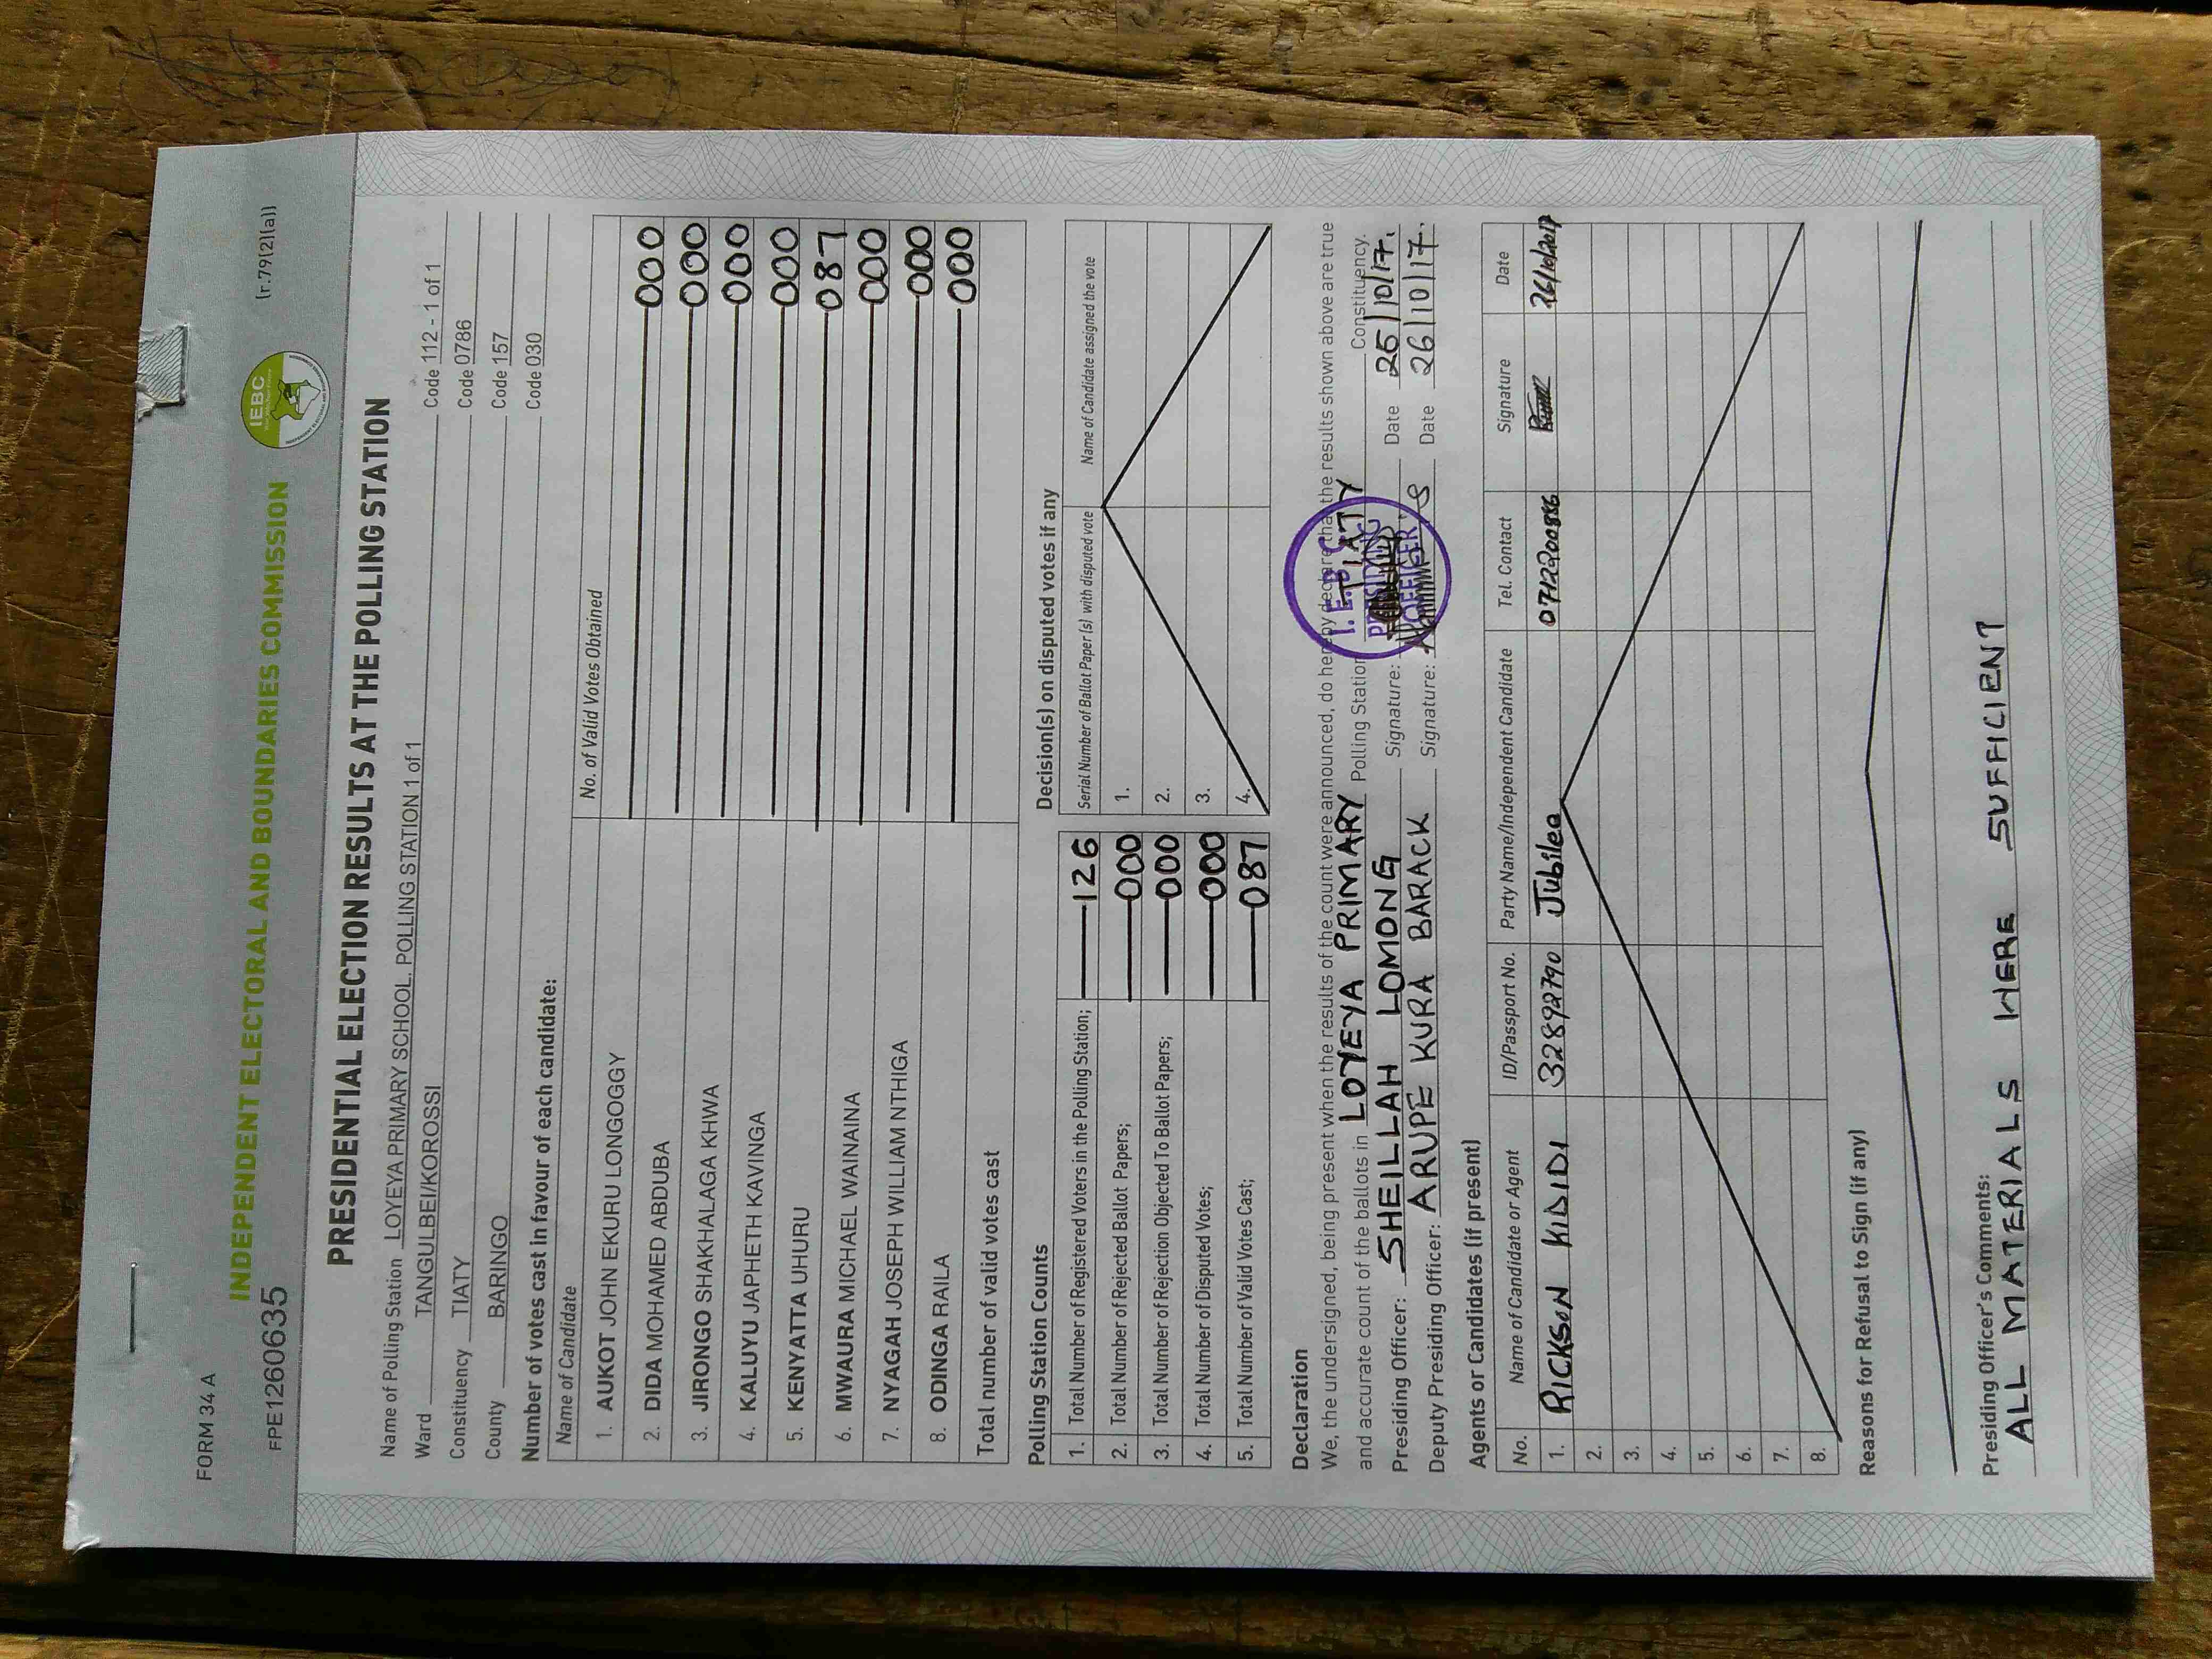 FORM 34 A
(r.79(2)(a))
INDEPENDENT ELECTORAL AND BOUNDARIES COMMISSION
IEBC
FPE1260635
PRESIDENTIAL ELECTION RESULTS AT THE POLLING STATION
Name of Polling Station LOYEYA PRIMARY SCHOOL. POLLING STATION 1 of 1 Code 112 - 1 of 1
Ward TANGULBEI/KOROSSI Code 0786
Constituency TIATY Code 157
County BARINGO Code 030
Number of votes cast in favour of each candidate:
Name of Candidate No. of Valid Votes Obtained
1. AUKOT JOHN EKURU LONGOGGY 000
2. DIDA MOHAMED ABDUBA 000
3. JIRONGO SHAKHALAGA KHWA 000
4. KALUYU JAPHETH KAVINGA 000
5. KENYATTA UHURU 087
6. MWAURA MICHAEL WAINAINA 000
7. NYAGAH JOSEPH WILLIAM NTHIGA 000
8. ODINGA RAILA 000
Total number of valid votes cast
Polling Station Counts
1. Total Number of Registered Voters in the Polling Station; 126
2. Total Number of Rejected Ballot Papers; 000
3. Total Number of Rejection Objected To Ballot Papers; 000
4. Total Number of Disputed Votes; 000
5. Total Number of Valid Votes Cast; 087
Decision(s) on disputed votes if any
Serial Number of Ballot Paper (s) with disputed vote Name of Candidate assigned the vote
1.
2.
3.
4.
Declaration
We, the undersigned, being present when the results of the count were announced, do hereby declare that the results shown above are true
and accurate count of the ballots in LOYEYA PRIMARY Polling Station TIATY Constituency.
Presiding Officer: SHEILLAH LOMONG Signature: Date 25/10/17.
Deputy Presiding Officer: ARUPE KURA BARACK Signature: Date 26/10/17.
I.E.B.C
PRESIDING
OFFICER
Agents or Candidates (if present)
No. Name of Candidate or Agent ID/Passport No. Party Name/Independent Candidate Tel. Contact Signature Date
1. RICKSON KIDIDI 32892790 Jubilee 0712200886 26/10/2017
2.
3.
4.
5.
6.
7.
8.
Reasons for Refusal to Sign (if any)
Presiding Officer's Comments:
ALL MATERIALS HERE SUFFICIENT